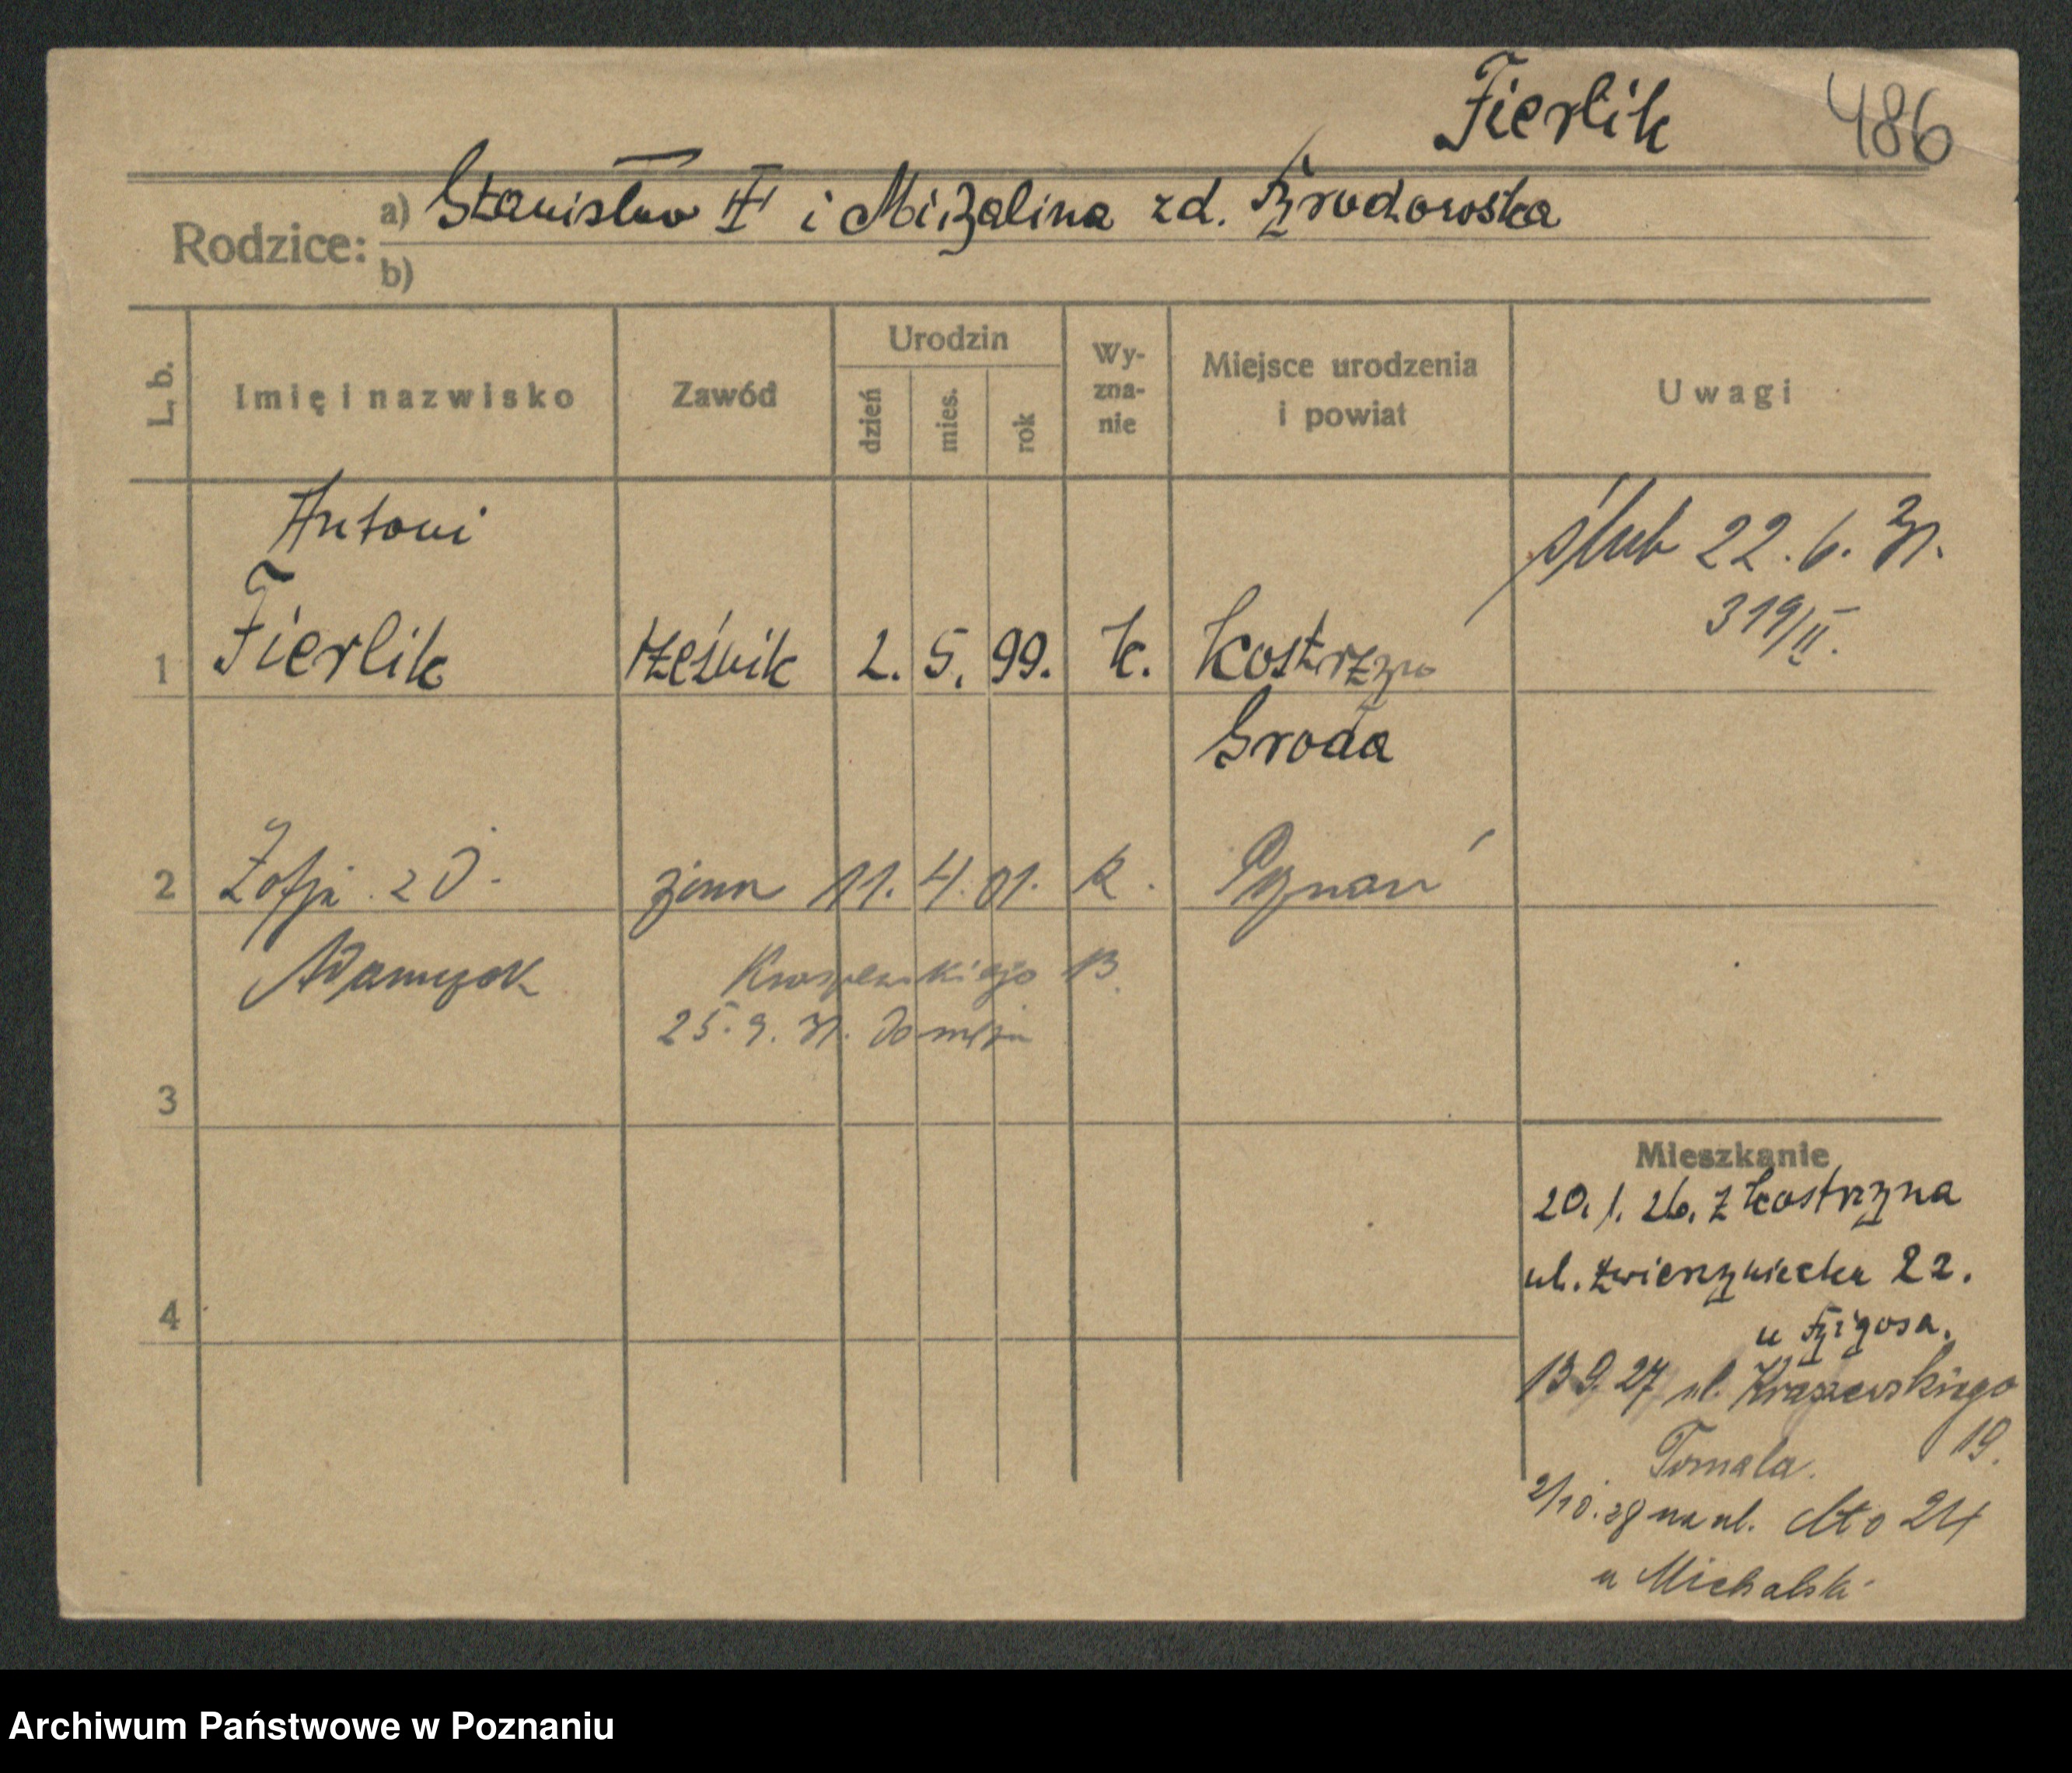 Fierlik 486
Rodzice: a) Stanisław F i Mizalina zd.
b)
L. b.
Imię i nazwisko
Zawód
Urodzin
dzień
mies.
rok
Wy-
zna-
nie
Miejsce urodzenia
i powiat
Uwagi
Antoni
1 Fierlik rzeźnik 2. 5. 99. k. Kostrzyn
Środa
ślub 22. 6. 31.
319/II.
2 Zofja z d. żona 11. 4. 01. k. Poznań
Adamczak
Kraszewskiego 13.
25. 9. 31. do męża
3
4
Mieszkanie
20. 1. 26. z Kostrzyna
ul. Zwierzyniecka 22.
u
13 9. 27 ul. Kraszewskiego
19.
Tomala.
2/10. 28 na ul. dto 24
u Michalski
Archiwum Państwowe w Poznaniu